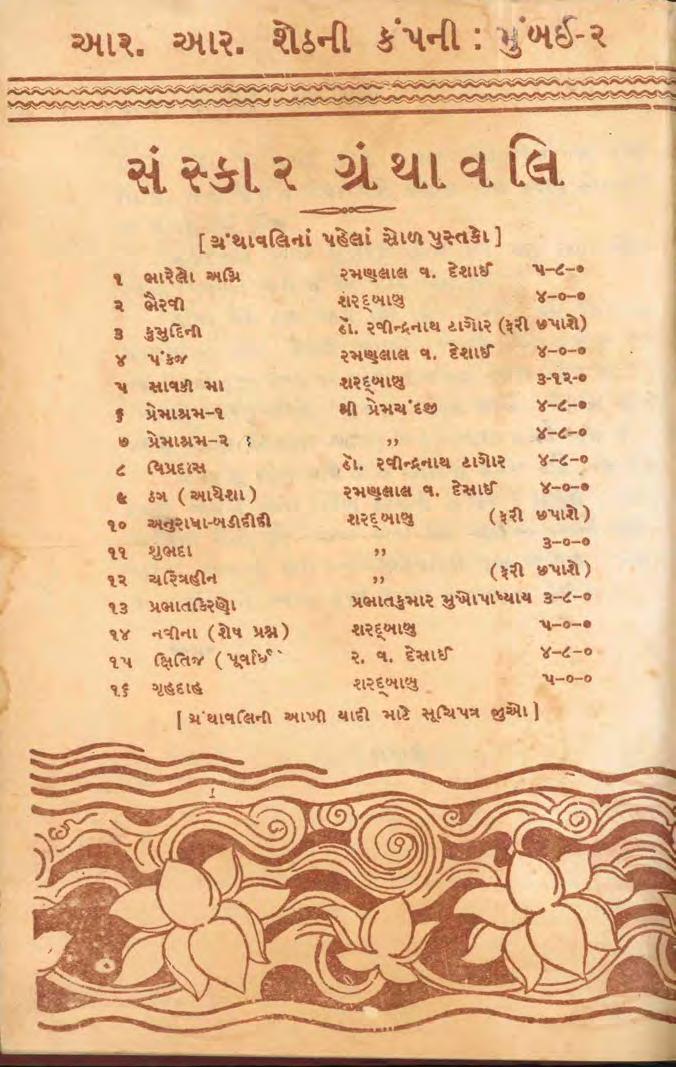 આર. આર. શેઠની કંપની : મુંબઈ-૨
સંસ્કાર ગ્રંથાવલિ
[ ગ્રંથાવલિનાં પહેલાં સોળ પુસ્તકો ]
૧ ભારેલો અગ્નિ રમણલાલ વ. દેશાઈ ૫-૮-૦
૨ ભૈરવી શરદ્‌બાબુ ૪-૦-૦
૩ કુમુદિની ડૉ. રવીન્દ્રનાથ ટાગોર (ફરી છપાશે)
૪ પંકજ રમણલાલ વ. દેશાઈ ૪-૦-૦
૫ સાવકી મા શરદ્‌બાબુ ૩-૧૨-૦
૬ પ્રેમાશ્રમ-૧ શ્રી પ્રેમચંદજી ૪-૮-૦
૭ પ્રેમાશ્રમ-૨ ,, ૪-૮-૦
૮ વિપ્રદાસ ડૉ. રવીન્દ્રનાથ ટાગોર ૪-૮-૦
૯ ઠગ ( આયેશા ) રમણલાલ વ. દેસાઈ ૪-૦-૦
૧૦ અનુરાધા-બડીદીદી શરદ્‌બાબુ (ફરી છપાશે)
૧૧ શુભદા ,, ૩-૦-૦
૧૨ ચરિત્રહીન ,, (ફરી છપાશે)
૧૩ પ્રભાતકિરણો પ્રભાતકુમાર મુખોપાધ્યાય ૩-૮-૦
૧૪ નવીના ( શેષ પ્રશ્ન ) શરદ્‌બાબુ ૫-૦-૦
૧૫ ક્ષિતિજ ( પૂર્વાર્ધ ) ર. વ. દેસાઈ ૪-૮-૦
૧૬ ગૃહદાહ શરદ્‌બાબુ ૫-૦-૦
[ ગ્રંથાવલિની આખી યાદી માટે સૂચિપત્ર જુઓ ]